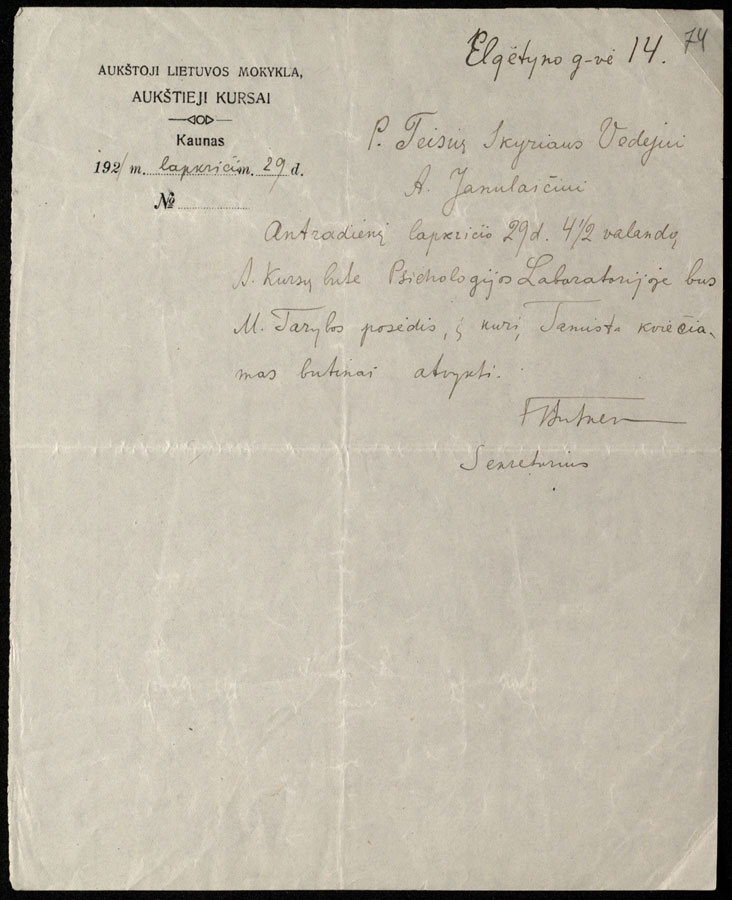 Elgėtyno g-vė 14. 74
AUKŠTOJI LIETUVOS MOKYKLA,
AUKŠTIEJI KURSAI
Kaunas
1921 m. lapkričio m. 29 d.
№
P. Teisių Skyriaus Vedėjui
A. Janulaičiui
Antradienį lapkričio 29 d. 4 1/2 valandą
A. Kursų bute Psichologijos Laboratorijoje bus
M. Tarybos posėdis, į kurį Tamista kviečia-
mas butinai atvykti.
Sekretorius